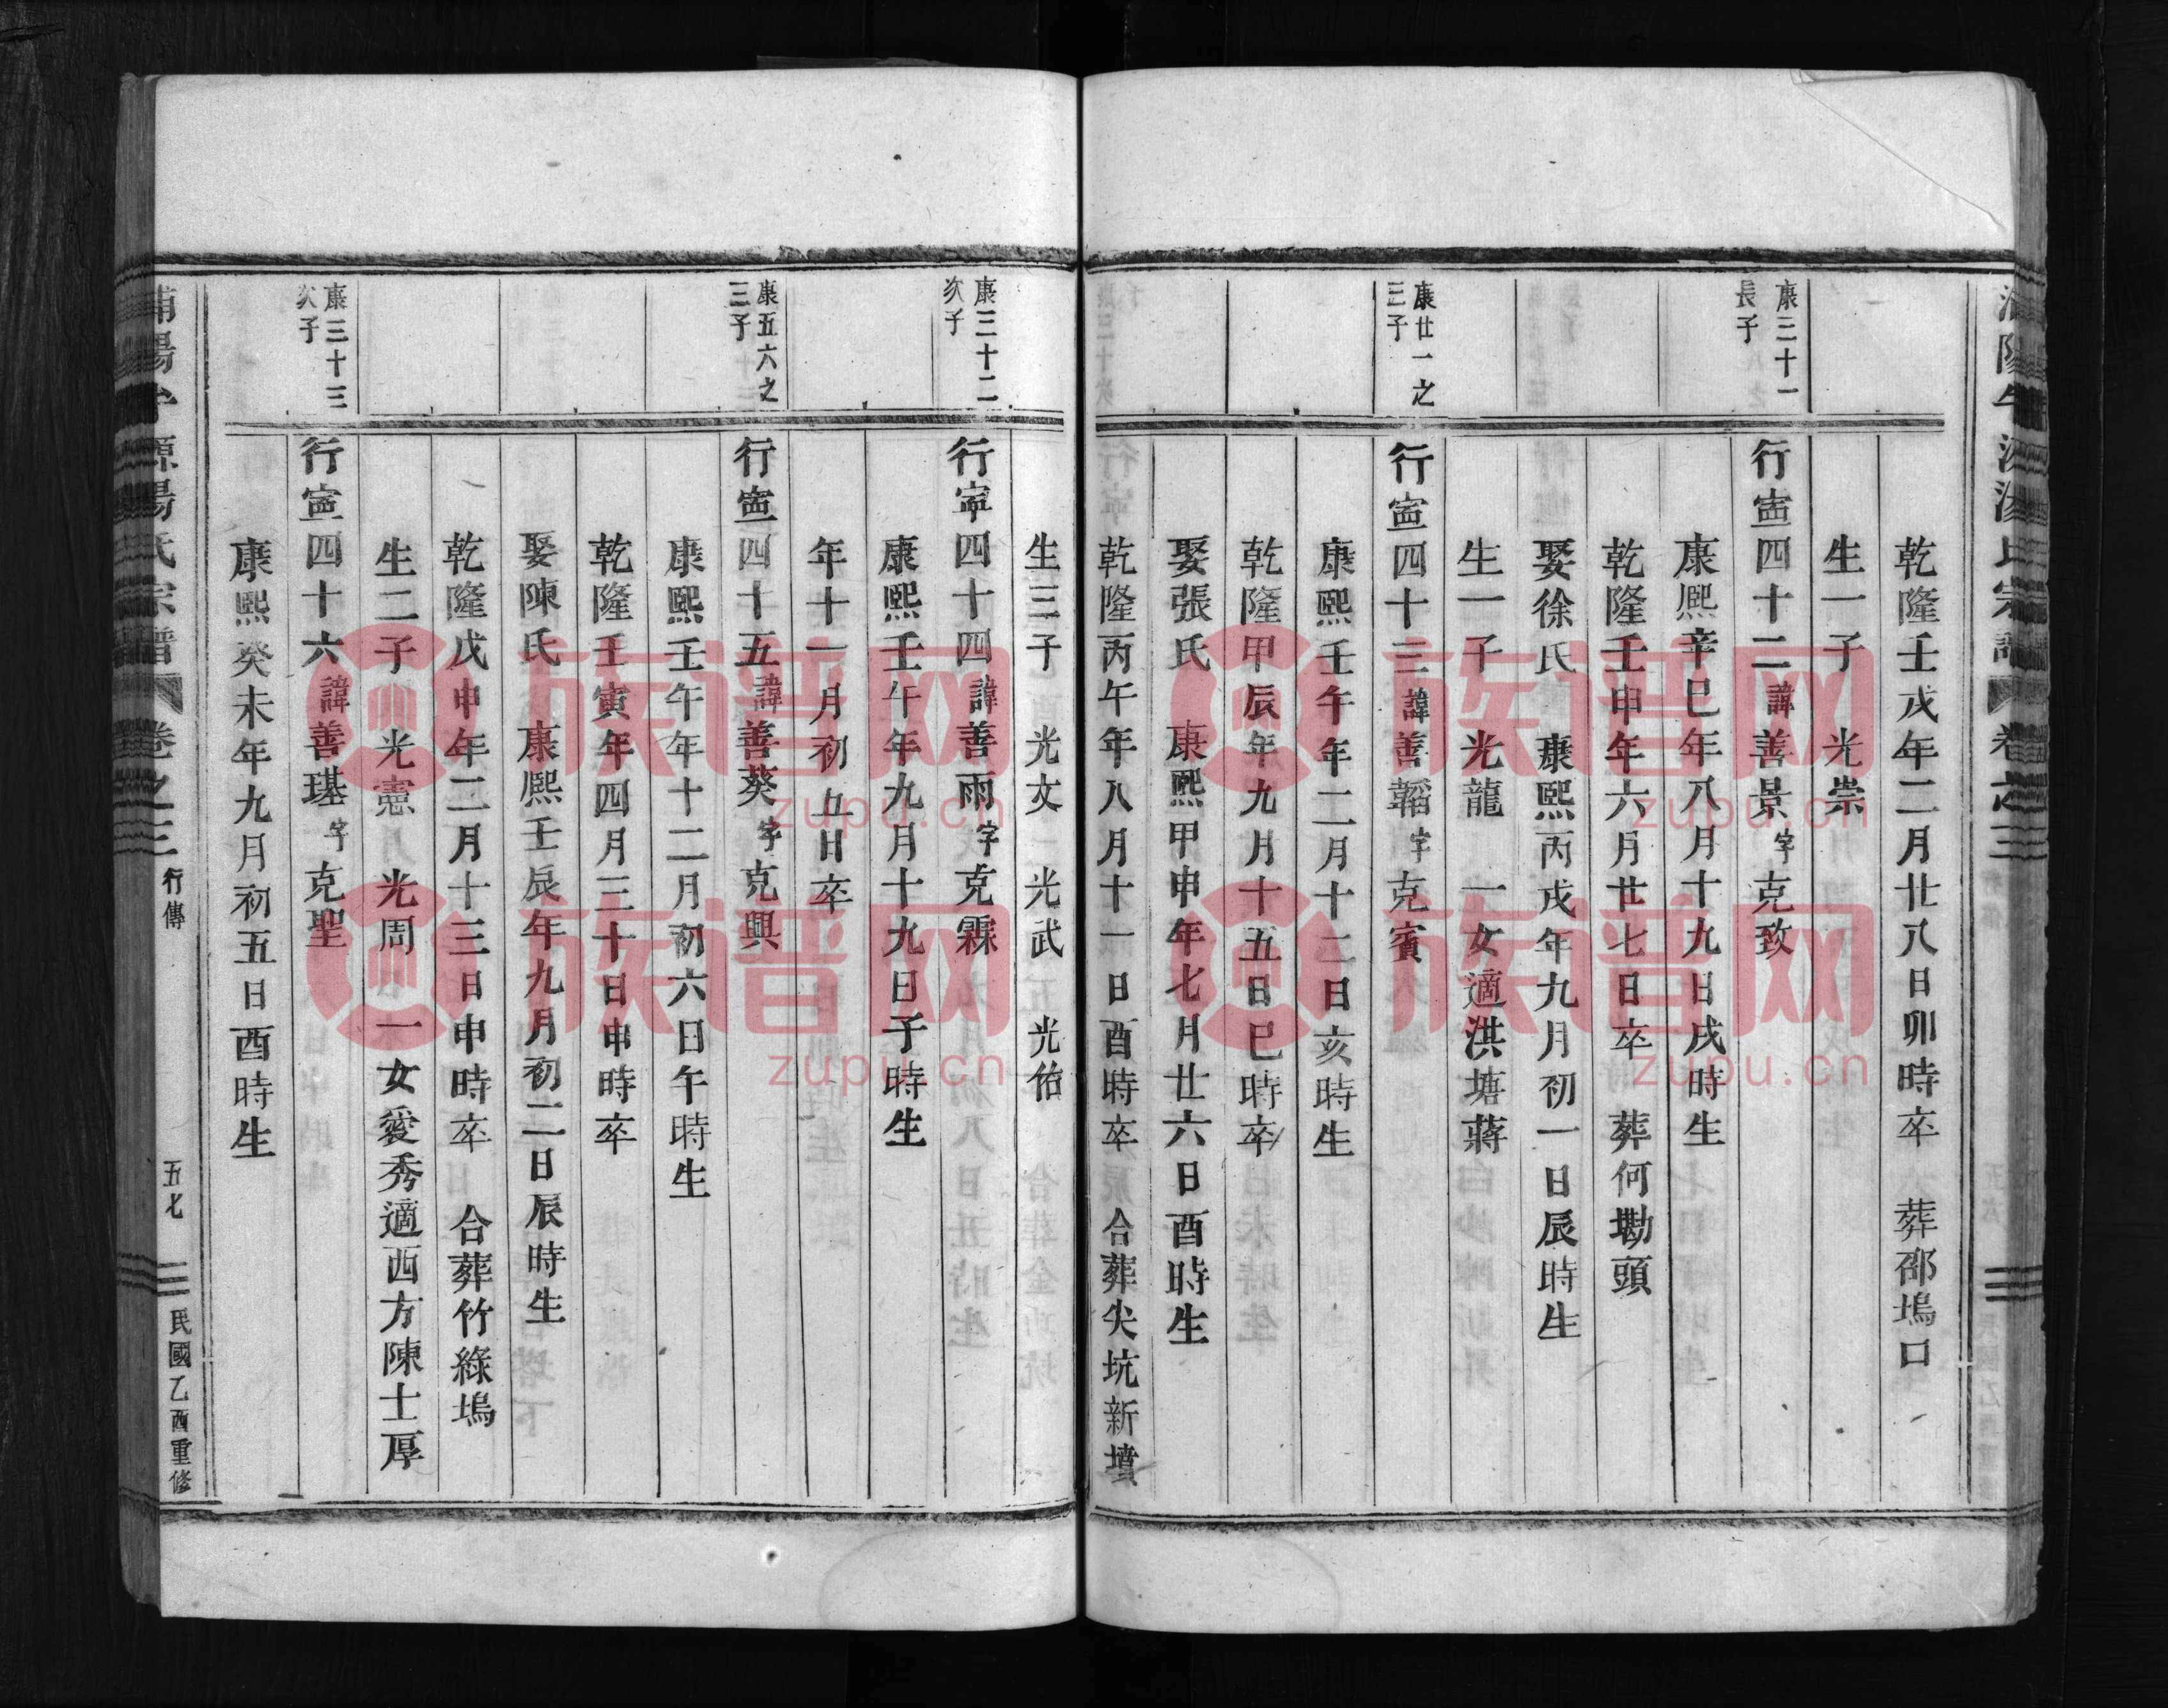 乾隆壬戌年二月廿八日卯時卒　葬邵塢口
生一子　光崇
康三十一
長子
行寍四十二諱善景字克致
康熙辛巳年八月十九日戌時生
乾隆壬申年六月廿七日卒　葬何墈頭
娶徐氏　康熙丙戌年九月初一日辰時生
生一子　光龍　一女適洪塘蔣
康廿一之
三子
行寍四十三諱善韜字克賓
康熙壬午年二月十二日亥時生
乾隆甲辰年九月十五日巳時卒
娶張氏　康熙甲申年七月廿六日酉時生
乾隆丙午年八月十一日酉時卒　合葬尖坑新墳
生三子　光文　光武　光佑
康三十二
次子
行寧四十四諱善雨字克霖
康熙壬午年九月十九日子時生
年十一月初五日卒
康五六之
三子
行寍四十五諱善葵字克興
康熙壬午年十二月初六日午時生
乾隆壬寅年四月三十日申時卒
娶陳氏　康熙壬辰年九月初二日辰時生
乾隆戊申年二月十三日申時卒　合葬竹綠塢
生二子　光憲　光周　一女愛秀適西方陳士厚
康三十三
次子
行寍四十六諱善璂字克聖
康熙癸未年九月初五日酉時生
源湯氏宗譜　卷之三　行傳　五七　民國乙酉重修
族谱网
zupu.cn
族谱网
zupu.cn
族谱网
zupu.cn
族谱网
zupu.cn